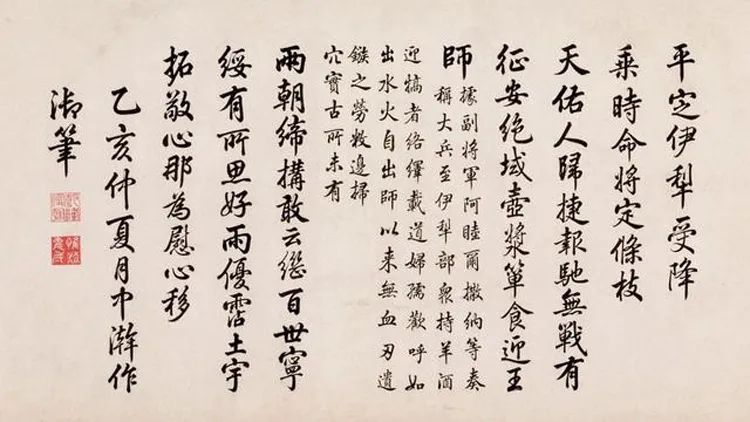 平定伊犁受降
乘時命將定條枝
天佑人歸捷報馳無戰有
征安絕域壺漿簞食迎王
師
據副將軍阿睦爾撒納等奏
稱大兵至伊犁部衆持羊酒
迎犒者絡繹載道婦孺歡呼如
出水火自出師以来無血刃遺
鏃之勞救邊掃
穴實古所未有
兩朝締搆敢云繼百世寧
綏有所思好雨優霑土宇
拓敬心那為慰心移
乙亥仲夏月中澣作
御筆